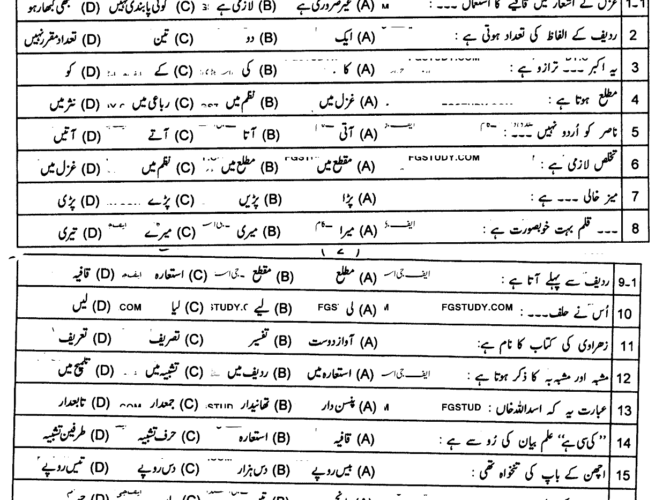 1-1 غزل کے اشعار میں قافیے کا استعمال ۔۔۔ : (A) غیر ضروری ہے (B) لازمی ہے (C) کوئی پابندی نہیں (D) کبھی کبھار ہو
2 ردیف کے الفاظ کی تعداد ہوتی ہے : (A) ایک (B) دو (C) تین (D) تعداد مقرر نہیں
3 یہ اکبر ۔۔۔ ترازو ہے : (A) کا (B) کی (C) کے (D) کو
4 مطلع ہوتا ہے : (A) غزل میں (B) نظم میں (C) رباعی میں (D) نثر میں
5 ناصر کو اُردو نہیں ۔۔۔ : (A) آتی (B) آتا (C) آتے (D) آتیں
6 تخلص لازمی ہے : FGSTUDY.COM (A) مقطع میں (B) مطلع میں (C) نظم میں (D) غزل میں
7 میز خالی ۔۔۔ ہے : (A) پڑا (B) پڑیں (C) پڑے (D) پڑی
8 ۔۔۔ قلم بہت خوبصورت ہے : (A) میرا (B) میری (C) میرے (D) تیری
9-1 ردیف سے پہلے آتا ہے : ایف جی اس (A) مطلع (B) مقطع (C) استعارہ (D) قافیہ
10 اُس نے حلف ۔۔۔ : FGSTUDY.COM (A) لی (B) لیے (C) لیا (D) لیں
11 زھراوی کی کتاب کا نام ہے: (A) آواز دوست (B) تفسیر (C) تصریف (D) تعریف
12 مشبہ اور مشبہ بہ کا ذکر ہوتا ہے : (A) استعارہ میں (B) ردیف میں (C) تشبیہ میں (D) تلمیح میں
13 عبارت یہ کہ اسد اللہ خاں : FGSTUD (A) پنسن دار (B) تھانیدار (C) جمعدار (D) تابعدار
14 ”کی سی ہے“ علم بیان کی رُو سے ہے : (A) قافیہ (B) استعارہ (C) حرف تشبیہ (D) طرفین تشبیہ
15 اچھن کے باپ کی تنخواہ تھی : (A) بیس روپے (B) دس ہزار (C) دس روپے (D) تیس روپے